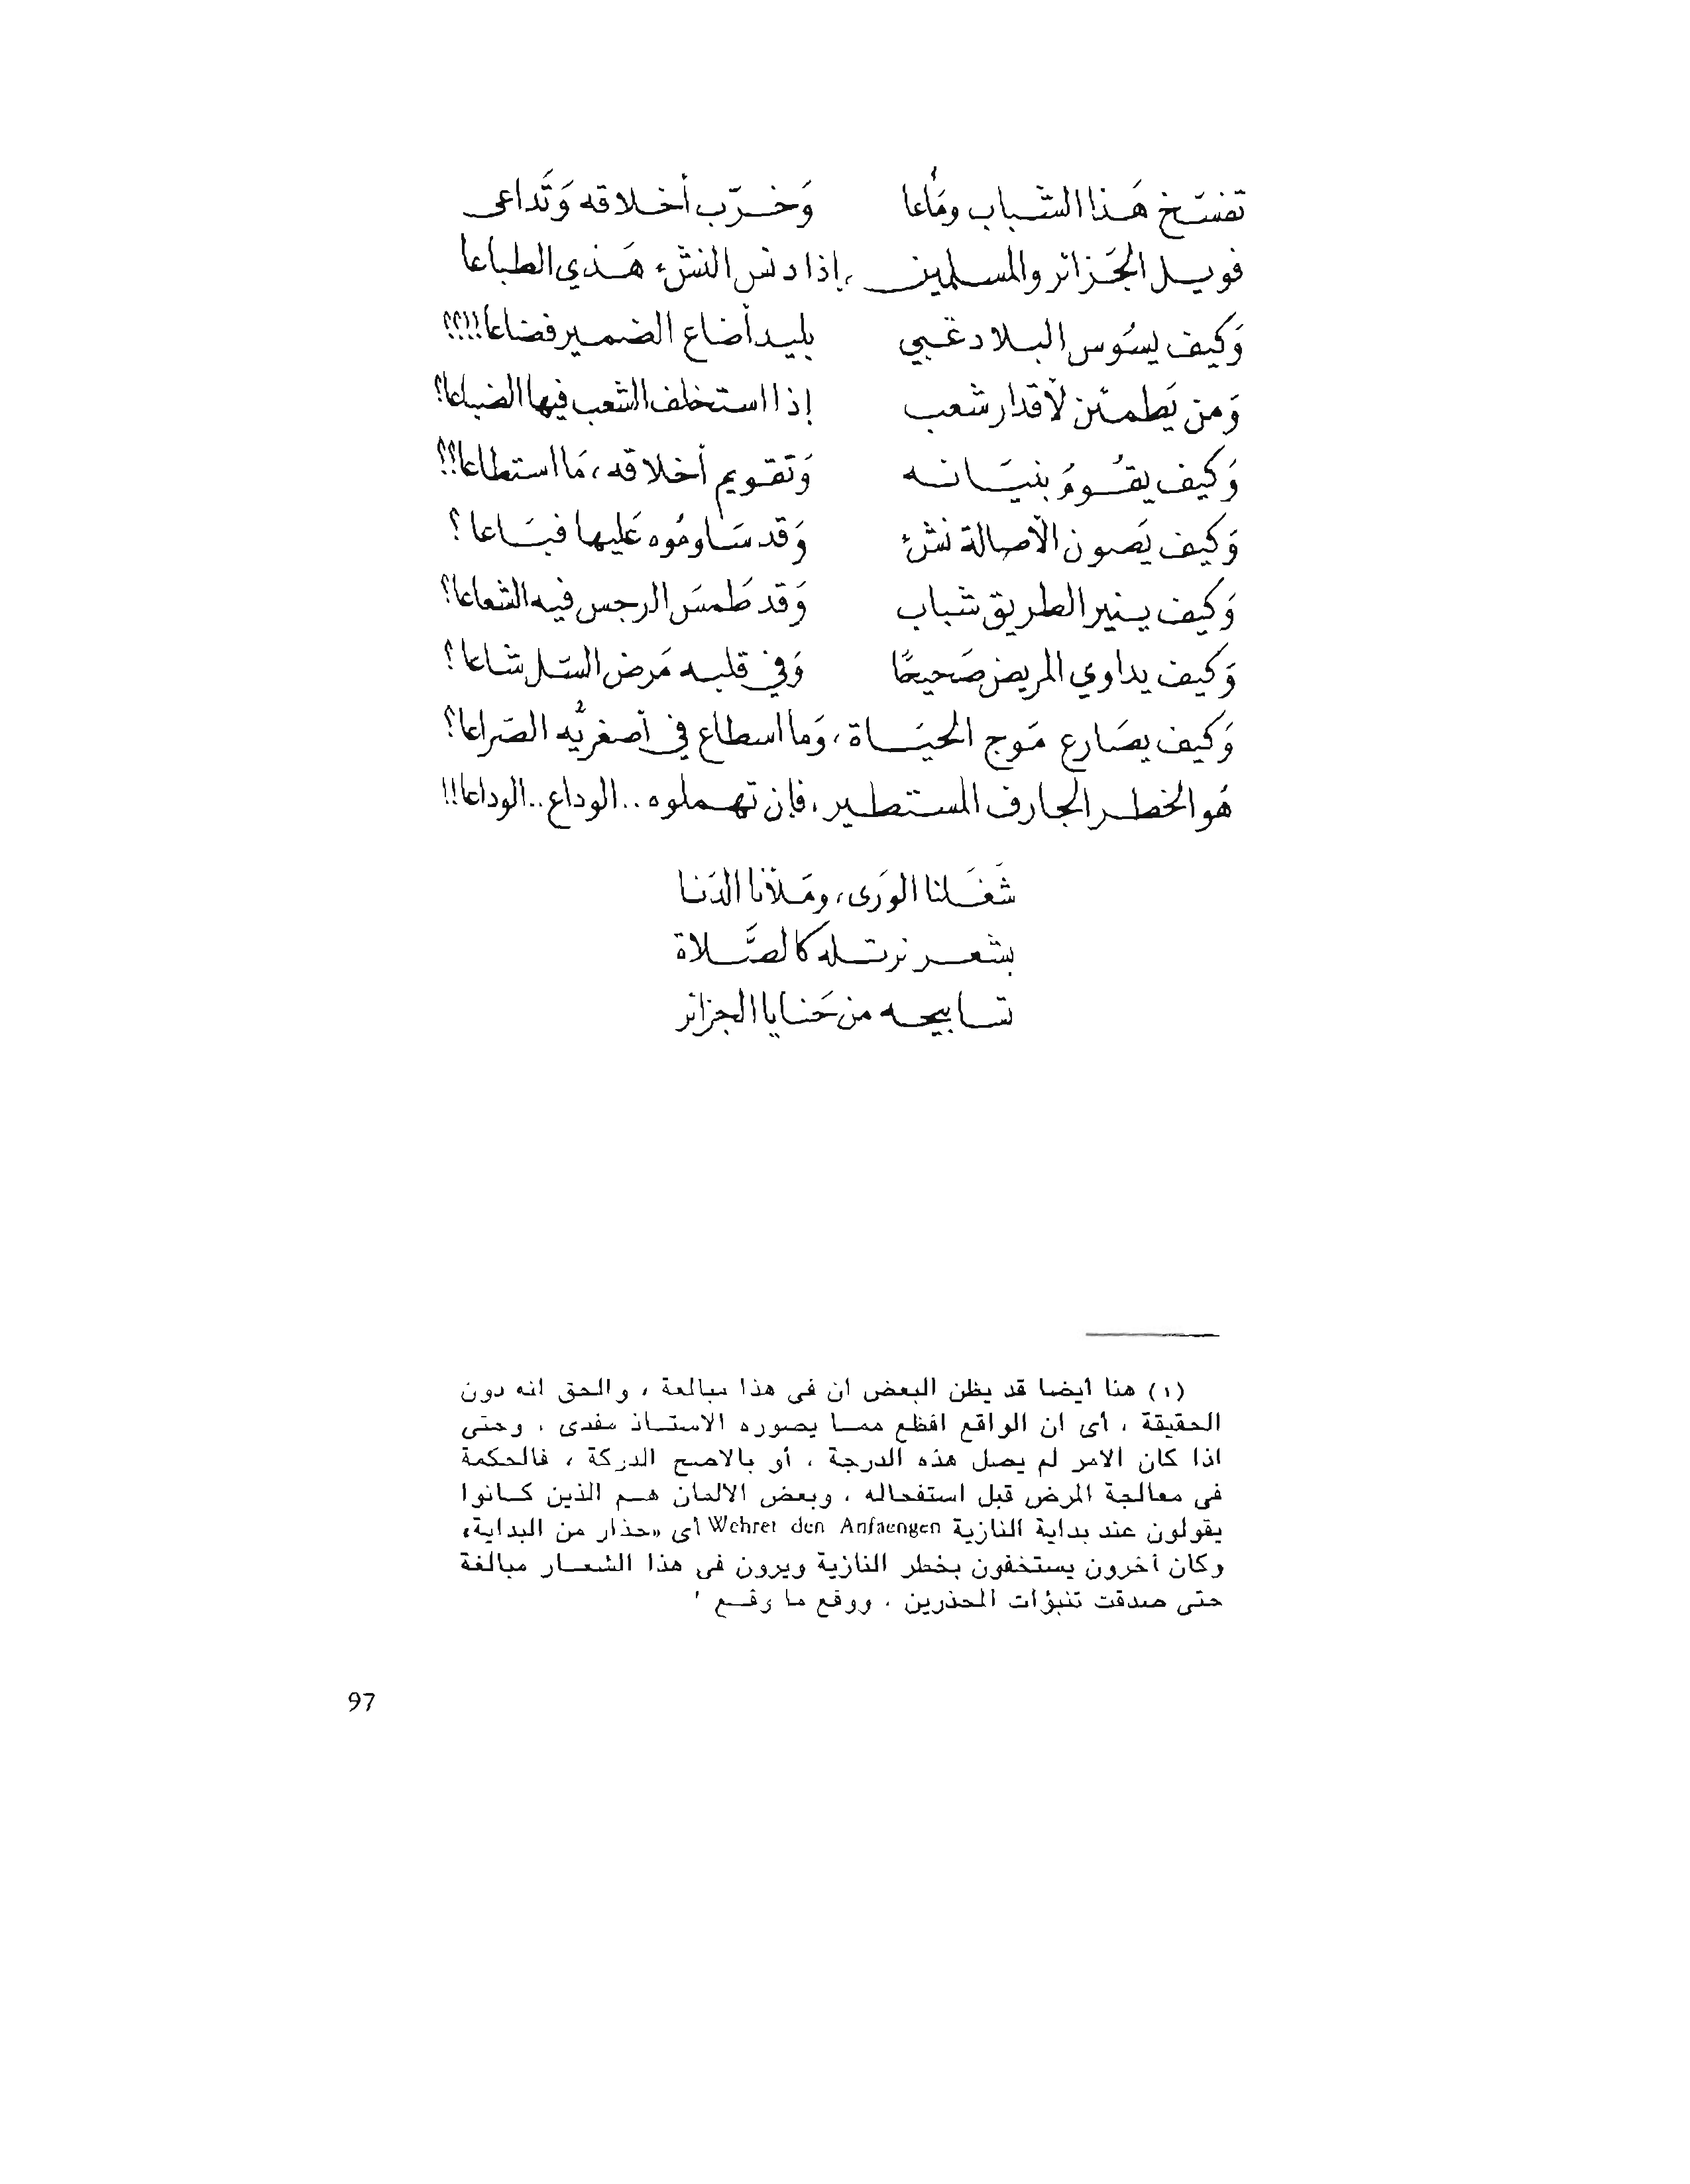 تفسّخ هَذا الشّباب ومَاعا وَخرّب أخلاقه وَتَداعى
فويل الجَزائر والمسلمين ، إذا دنس النشْء هَذي الطباعا
وَكيف يسُوس البلاد غبي بليد أضاع الضمير فضاعا!!؟؟
وَمن يَطمئن لأقدار شعب إذا استخلف الشعب فيها الضباعا؟
وَكيف يقُومُ بنيَانه وَتقويم أخلاقه، مَا استطاعا!؟
وَكيف يَصون الأصالة نشْء وَقد سَاومُوه عَليها فبَاعا ؟
وَكيف ينير الطريق شباب وَقد طَمسَ الرجس فيه الشعاعا؟
وَكيف يداوي المريض صَحيحًا وَفي قلبه مَرض السّل شاعا ؟
وَكيف يصَارع مَوج الحيَاة، وَما اسطاع في أصغريْه الصّراعا؟
هُو الخطر الجارف المستطير، فإن تهملوه . . الوداع . . الوداعا!!
شَغَلنا الوَرى، ومَلأنا الدّنا
بشعر نرتله كالصَّلاة
تسابيحه من حَنايا الجزائر
(١) هنا أيضا قد يظن البعض ان فى هذا مبالغة ، والحق انه دون
الحقيقة ، أى ان الواقع افظع مما يصوره الاستاذ مفدى ، وحتى
اذا كان الامر لم يصل هذه الدرجة ، أو بالاصح الدركة ، فالحكمة
فى معالجة المرض قبل استفحاله ، وبعض الالمان هم الذين كانوا
يقولون عند بداية النازية Wehret den Anfaengen أى «حذار من البداية»
وكان أخرون يستخفون بخطر النازية ويرون فى هذا الشعار مبالغة
حتى صدقت تنبؤات المحذرين ، ووقع ما وقع '
97